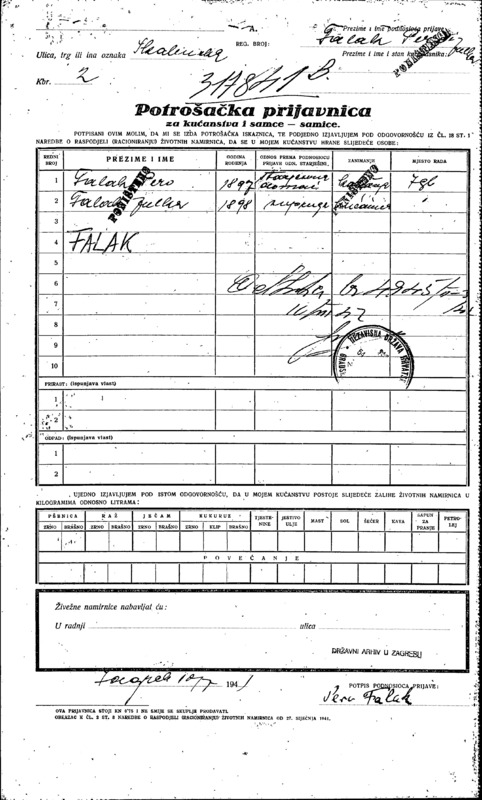 A.
Prezime i ime podnosioca prijave:
REG. BROJ:
Falak
Ulica, trg ili ina oznaka
Prezime i ime i stan kućevlasnika:
PONIŠTENO
Kbr. 2
317841 B.
Potrošačka prijavnica
za kućanstva i samce — samice.
POTPISANI OVIM MOLIM, DA MI SE IZDA POTROŠAČKA ISKAZNICA, TE PODJEDNO IZJAVLJUJEM POD ODGOVORNOŠĆU IZ ČL. 18 ST. 1
NAREDBE O RASPODJELI (RACIONIRANJU) ŽIVOTNIH NAMIRNICA, DA SE U MOJEM KUĆANSTVU HRANE SLIJEDEĆE OSOBE:
REDNI BROJ PREZIME I IME GODINA ROĐENJA ODNOS PREMA PODNOSIOCU PRIJAVE ODN. STARJEŠINI: ZANIMANJE MJESTO RADA
1 Falak Pero 1897 Zgl
2 Falak Julka 1898 supruga
PONIŠTENO
3
4 FALAK
5
6
7
8
9
10
NEZAVISNA DRŽAVA HRVATSKA
PRIRAST: (Ispunjava vlast)
1
2
ODPAD: (Ispunjava vlast)
1
2
UJEDNO IZJAVLJUJEM POD ISTOM ODGOVORNOŠĆU, DA U MOJEM KUĆANSTVU POSTOJE SLIJEDEĆE ZALIHE ŽIVOTNIH NAMIRNICA U
KILOGRAMIMA ODNOSNO LITRAMA:
PŠENICA RAŽ JEČAM KUKURUZ TJESTENINE JESTIVO ULJE MAST SOL ŠEĆER KAVA SAPUN ZA PRANJE PETROLEJ
ZRNO BRAŠNO ZRNO BRAŠNO ZRNO BRAŠNO ZRNO KLIP BRAŠNO
POVEĆANJE
Živežne namirnice nabavljat ću:
U radnji ulica
DRŽAVNI ARHIV U ZAGREBU
Zagreb 1941
POTPIS PODNOSIOCA PRIJAVE:
Pero Falak
OVA PRIJAVNICA STOJI KN 0'75 I NE SMIJE SE SKUPLJE PRODAVATI.
OBRAZAC K ČL. 2 ST. 2 NAREDBE O RASPODJELI (RACIONIRANJU) ŽIVOTNIH NAMIRNICA OD 27. SIJEČNJA 1941.